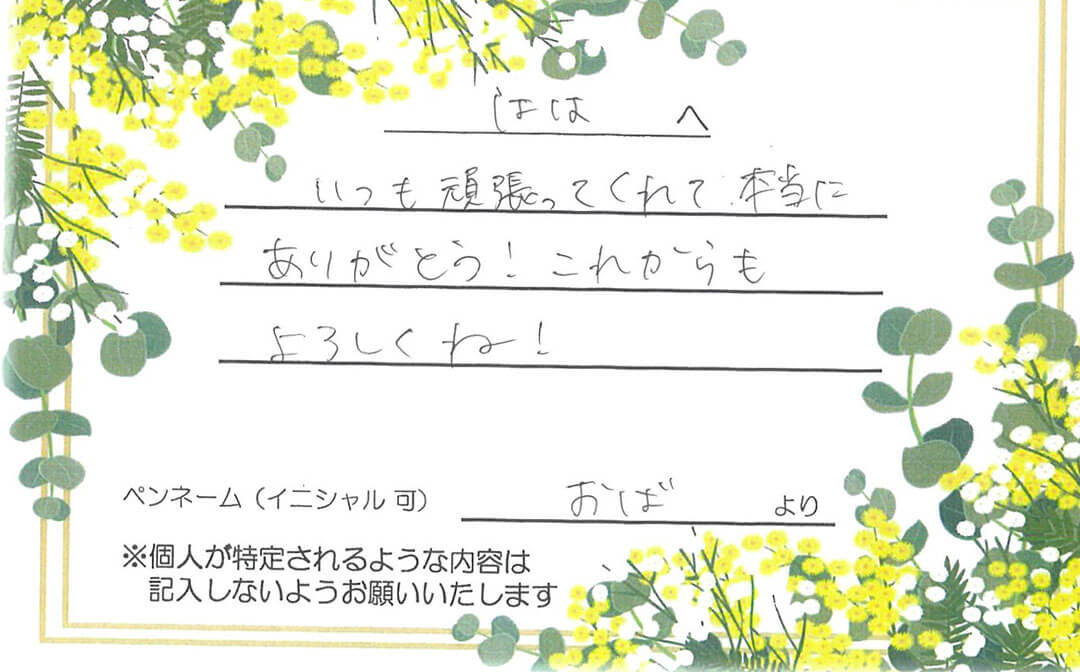 はは へ
いつも頑張ってくれて本当に
ありがとう!これからも
よろしくね!
ペンネーム(イニシャル可) おば より
※個人が特定されるような内容は
記入しないようお願いいたします